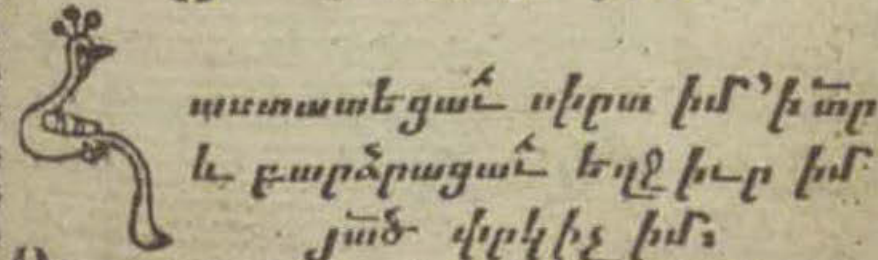 Հաստատեցա՛ւ սիրտ իմ՝ ի տ̅ր
և բարձրացա՛ւ եղջիւր իմ
յա̅ծ փրկիչ իմ։